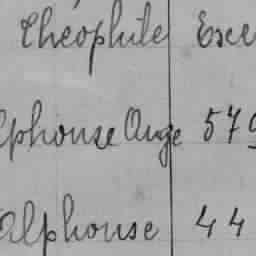 Théophile Exe
lphonse Ange 579
Alphonse 44